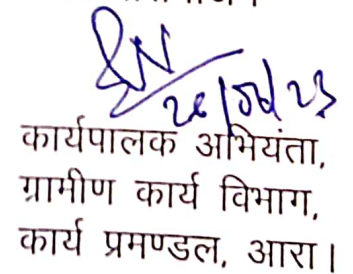 कार्यपालक अभियंता,
ग्रामीण कार्य विभाग,
कार्य प्रमण्डल, आरा।